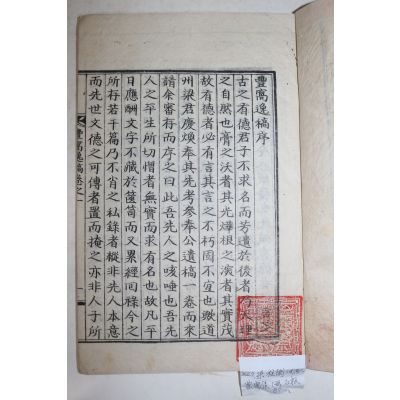 豐窩逸稿序
古之有德君子不求名而芳遺於後者
之自然也膏之沃者其光燁根之演者其實茂
故有德者必有言其言之不朽固不宜也歟道
州梁君慶煥奉其先考參奉公遺稿一卷而來
請余審存而序之曰此吾先人之咳唾也吾先
人之平生所切憎者無實而求有名也故凡平
日應酬文字不藏於篋笥而又累經回祿今之
所存若干篇乃不肖之私錄者縱非先人本意
而先世文德之可傳者置而掩之亦非人子所
豐窩逸稿卷之一